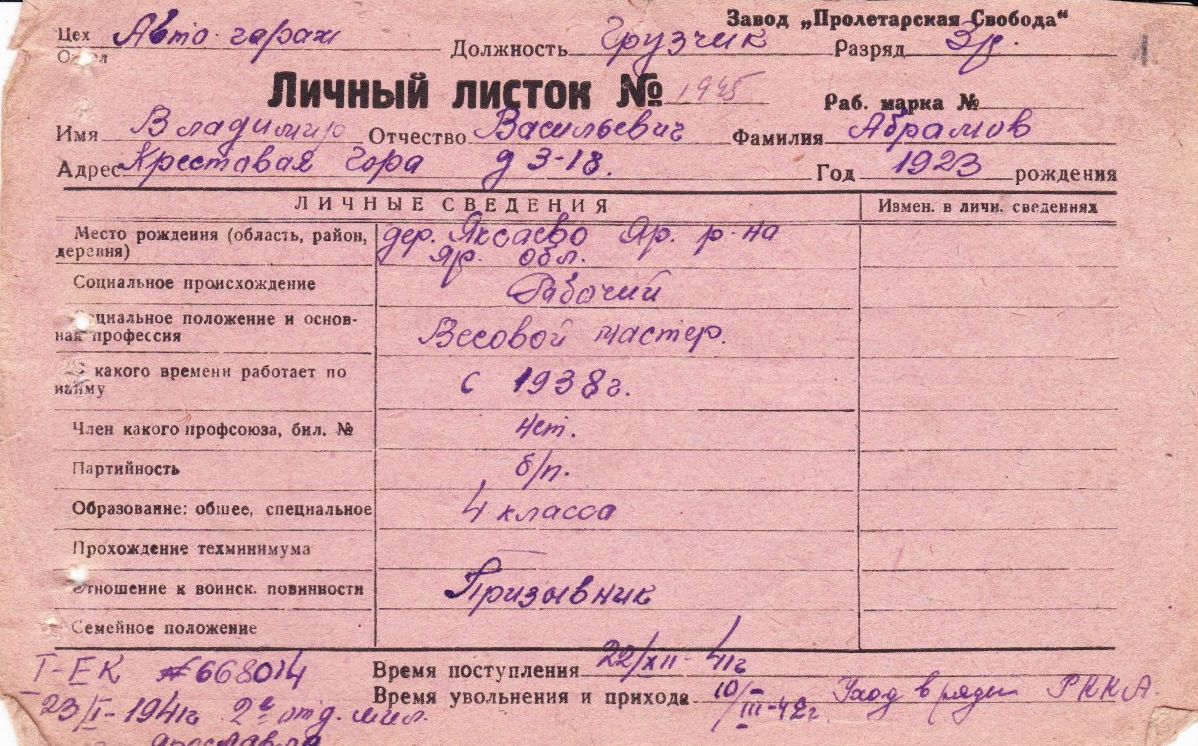 Завод „Пролетарская Свобода“
Цех Авто-гараж Должность Грузчик Разряд 3р.
Личный листок № 1945 Раб. марка №
Имя Владимир Отчество Васильевич Фамилия Абрамов
Адрес Креставая гора д 3-18. Год 1923 рождения
ЛИЧНЫЕ СВЕДЕНИЯ Измен. в личн. сведениях
Место рождения (область, район, дер. Яксаево Яр. р-на
деревня) Яр. обл.
Социальное происхождение Рабочий
циальное положение и основ-
ная профессия Весовой мастер.
С какого времени работает по
найму с 1938г.
Член какого профсоюза, бил. № Нет.
Партийность б/п.
Образование: общее, специальное 4 класса
Прохождение техминимума
Отношение к воинск. повинности Призывник
Семейное положение
I-ЕК №668014 Время поступления 22/XII-41г
23/I-1941г 2е отд. мил. Время увольнения и прихода 10/III-42г. Уход в ряды РККА.
Ярославля